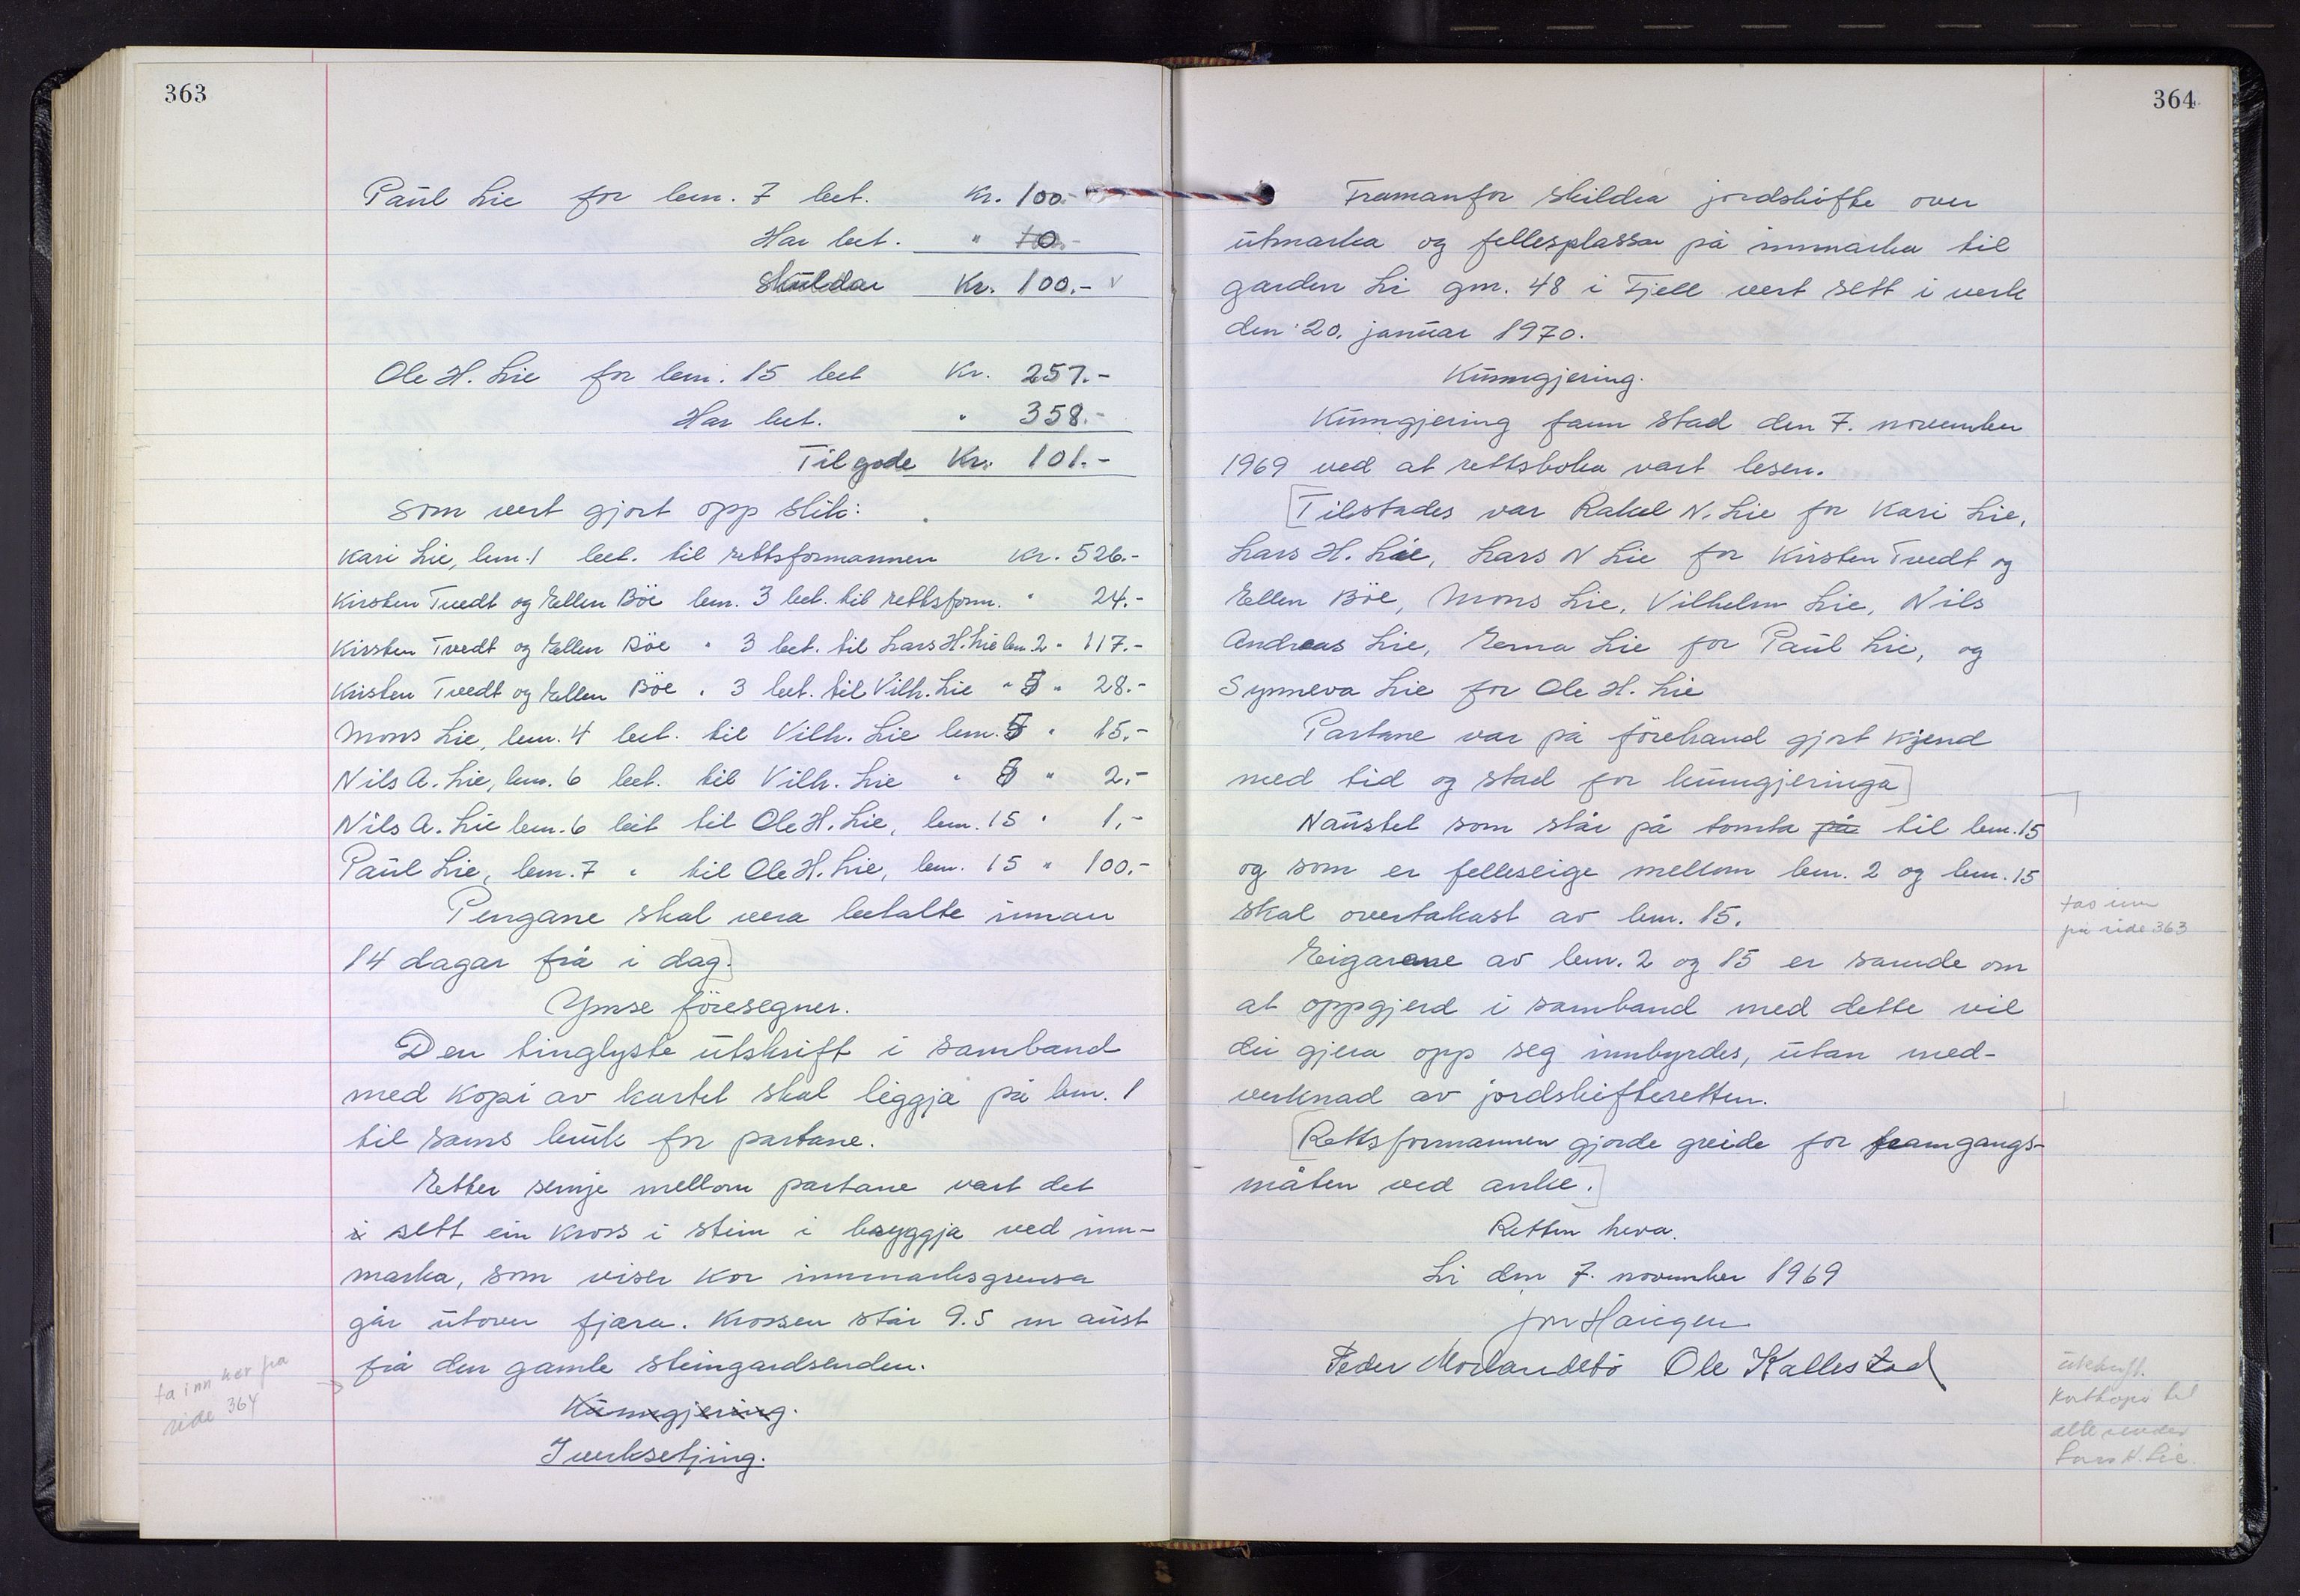 363
Paul Lie for lem. 7 bet. Kr. 100.-
Har bet. " 0
Skuldar Kr. 100.-
Ole H. Lie for lem. 15 bet Kr. 257.-
Har bet. " 358.-
Tilgode Kr. 101.-
som vert gjort opp slik:
Kari Lie, lem. 1 bet. til rettsformannen Kr. 526.-
Kirsten Tvedt og Ellen Böe lem. 3 bet. til rettsform. " 24.-
Kirsten Tvedt og Ellen Böe " 3 bet. til Lars H. Lie lem 2 " 117.-
Kirsten Tvedt og Ellen Böe " 3 bet. til Vilh. Lie " 5 " 28.-
Mons Lie, lem. 4 bet. til Vilh. Lie lem. 5 " 15.-
Nils A. Lie, lem. 6 bet. til Vilh. Lie " 5 " 2.-
Nils A. Lie lem. 6 bet til Ole H. Lie, lem. 15 " 1.-
Paul Lie, lem. 7 " til Ole H. Lie, lem. 15 " 100.-
Pengane skal vera betalte innan
14 dagar frå i dag.]
Ymse föresegner.
Den tinglyste utskrift i samband
med kopi av kartet skal liggja på lem. 1
til sams bruk for partane.
Etter semje mellom partane vart det
i sett ein kross i stein i bryggja ved inn-
marka, som viser kor innmarksgrensa
går utover fjæra. Krossen står 9.5 m aust
frå den gamle steingardsenden.
ta inn her fra
side 364
Kunngjering.
Iverksetjing.
364
Framanfor skildra jordskifte over
utmarka og fellesplassar på innmarka til
garden Li gnr. 48 i Fjell vert sett i verk
den 20. januar 1970.
Kunngjering.
Kunngjering fann stad den 7. november
1969 ved at rettsboka vart lesen.
[Tilstades var Rakel N. Lie for Kari Lie,
Lars H. Lie, Lars N Lie for Kirsten Tvedt og
Ellen Böe, Mons Lie, Vilhelm Lie, Nils
Andreas Lie, Erna Lie for Paul Lie, og
Synneva Lie for Ole H. Lie
Partane var på förehand gjort kjend
med tid og stad for kunngjeringa]
Naustet som står på tomta på til lem. 15
og som er felleseige mellom lem. 2 og lem. 15
skal overtakast av lem. 15.
tas inn
på side 363
Eigarane av lem. 2 og 15 er samde om
at oppgjerd i samband med dette vil
dei gjera opp seg innbyrdes, utan med-
verknad av jordskifteretten.
[Rettsformannen gjorde greide for framgangs-
måten ved anke.]
Retten heva.
Li den 7. november 1969
Jon Haugen
Peder Morlandstö Ole Kallestad
utskrift.
Kartkopi til
alle sendes
Lars H. Lie.